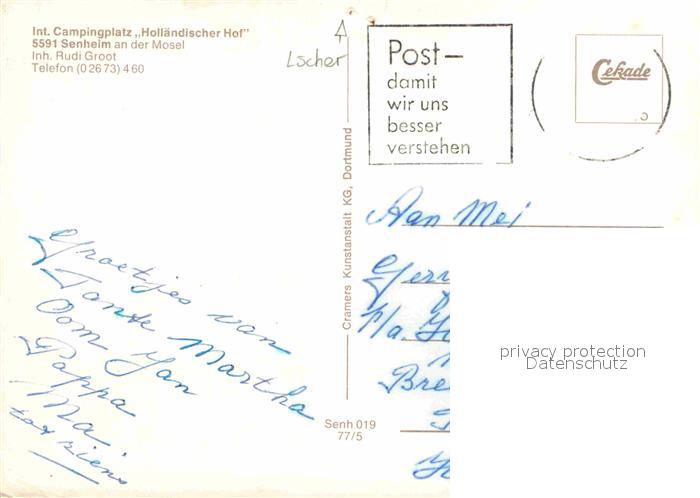 Int. Campingplatz „Holländischer Hof"
5591 Senheim an der Mosel
Inh. Rudi Groot
Telefon (0 26 73) 4 60
Lscher
Post—
damit
wir uns
besser
verstehen
Cekade
Cramers Kunstanstalt KG, Dortmund
Groetjes van
Tante Martha
Oom Jan
Pappa
Ma
tot ziens
Aan Mej
Gerr
P/a.
Bre
privacy protection
Datenschutz
Senh 019
77/5